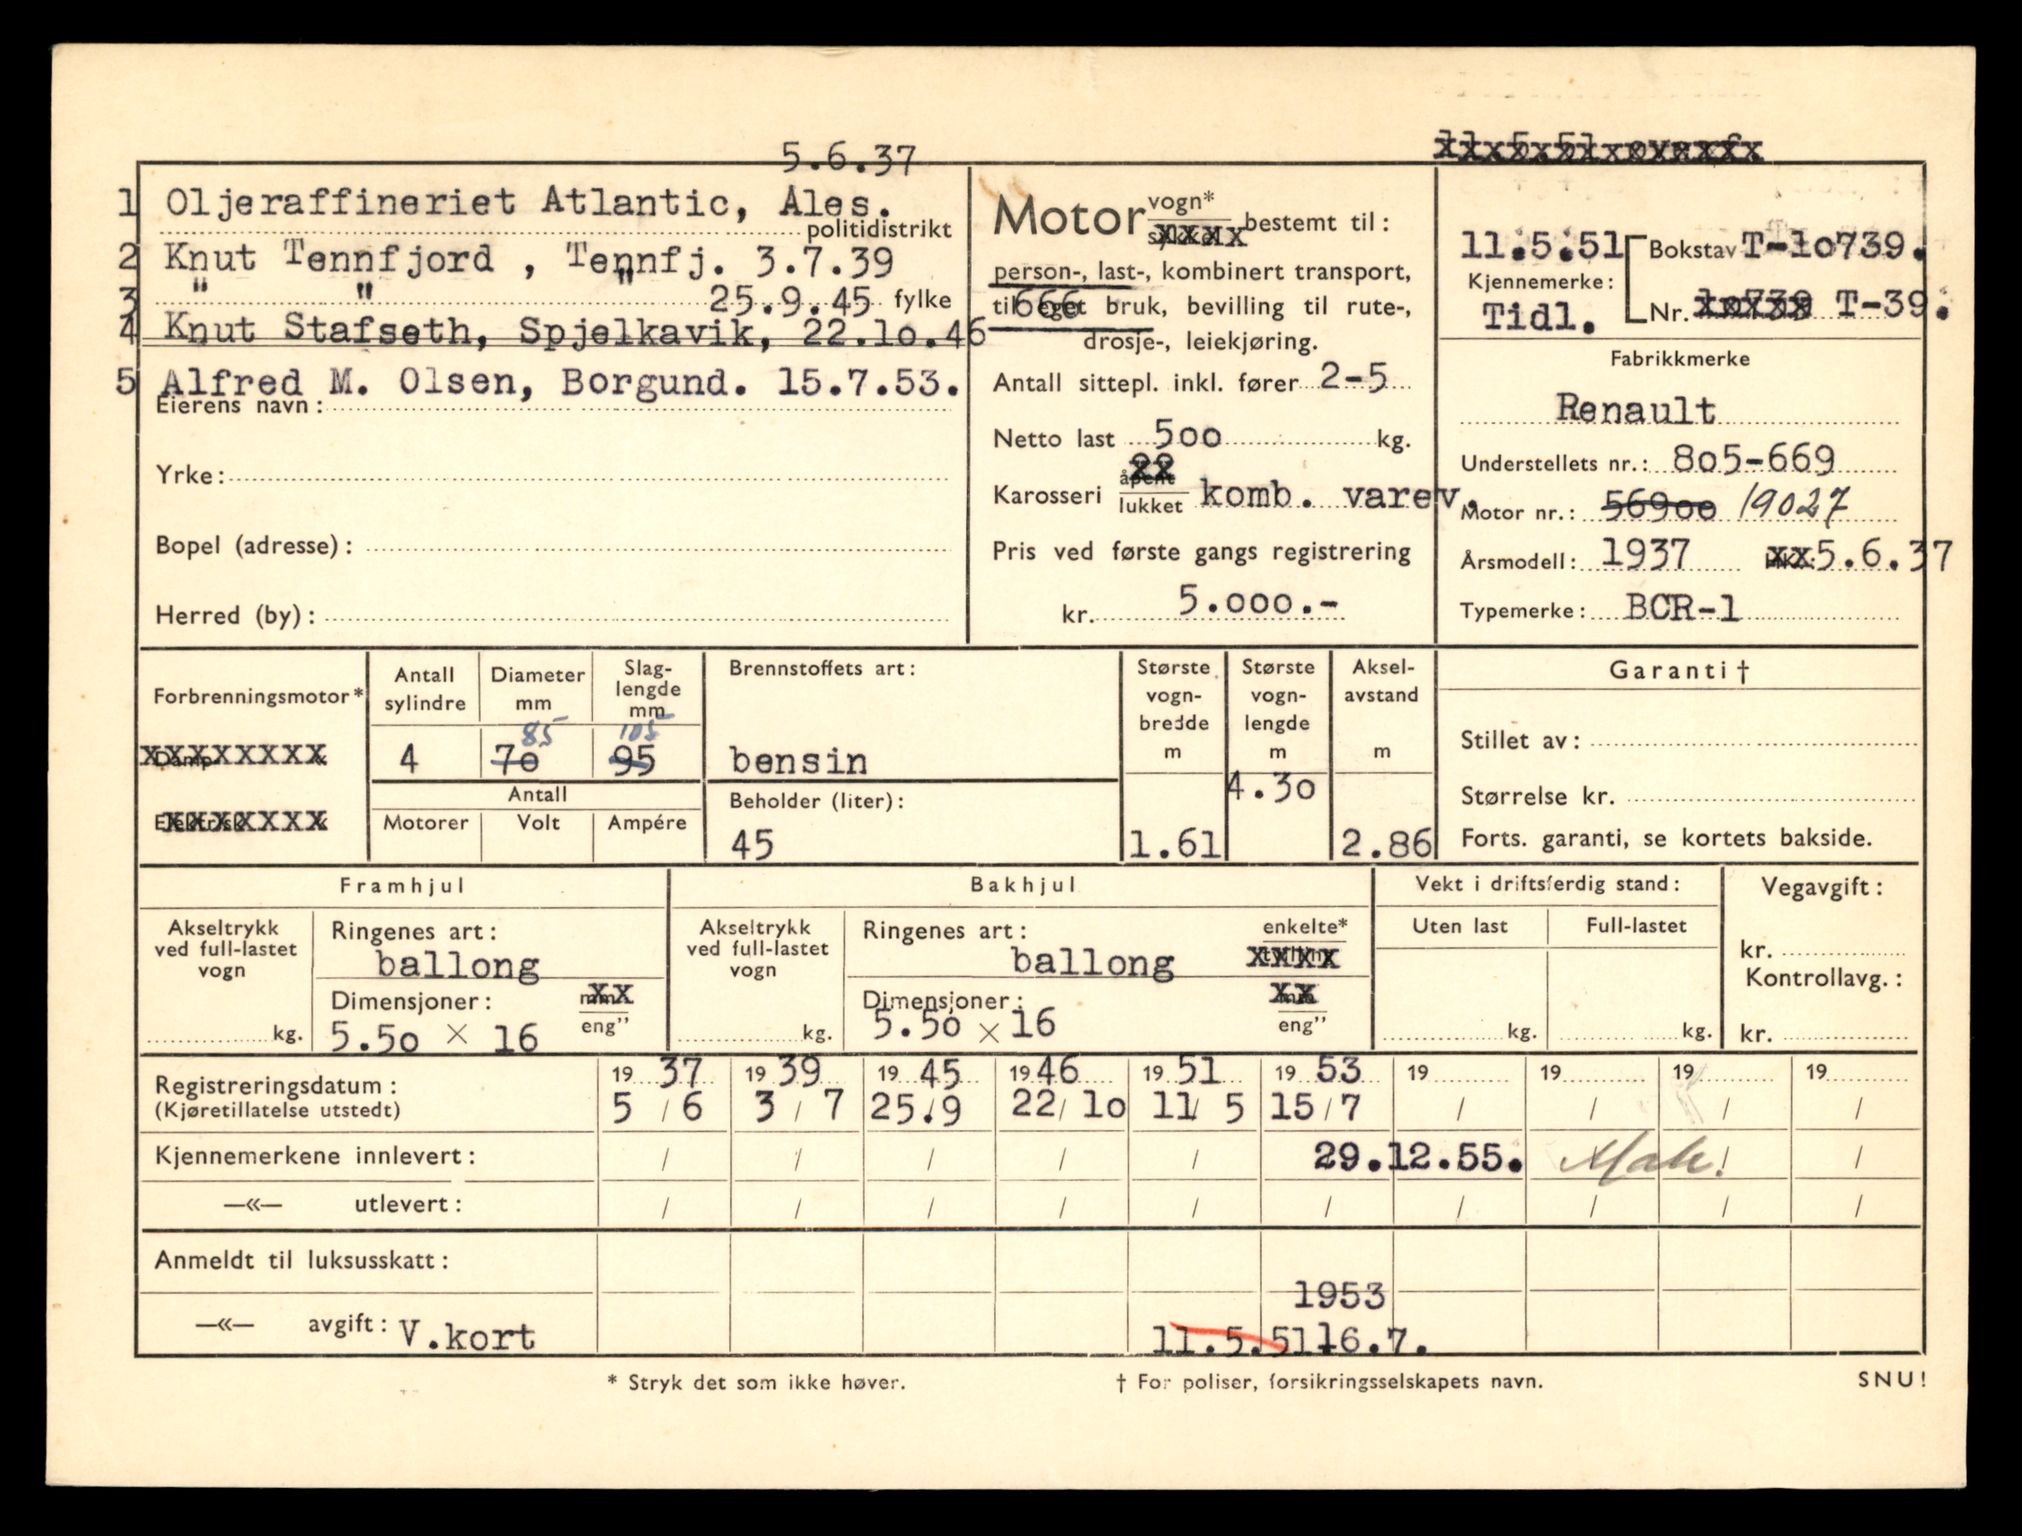 5.6.37
1 Oljeraffineriet Atlantic, Ales.
politidistrikt
2 Knut Tennfjord , Tennfj. 3.7.39
3 " " " 25.9.45 fylke
4 Knut Stafseth, Spjelkavik, 22.10.46
5 Alfred M. Olsen, Borgund. 15.7.53.
Eierens navn:
Yrke:
Bopel (adresse):
Herred (by):
Motor vogn* bestemt til:
person-, last-, kombinert transport,
til eget bruk, bevilling til rute-,
666
drosje-, leiekjøring.
Antall sittepl. inkl. fører 2-5
Netto last 500 kg.
Karosseri åpent lukket komb. varev.
Pris ved første gangs registrering
kr. 5.000.-
11.5.51 Bokstav T-10739.
Kjennemerke:
Tidl. Nr. 10739 T-39.
Fabrikkmerke
Renault
Understellets nr.: 805-669
Motor nr.: 56900 19027
Årsmodell: 1937 5.6.37
Typemerke: BCR-1
Forbrenningsmotor*
Damp
Elektrisk
Antall sylindre
Diameter mm
Slag-
lengde
mm
85 105
4 70 95
Antall
Motorer Volt Ampére
Brennstoffets art:
bensin
Beholder (liter):
45
Største
vogn-
bredde
m
1.61
Største
vogn-
lengde
m
4.30
Aksel-
avstand
m
2.86
Garanti †
Stillet av:
Størrelse kr.
Forts. garanti, se kortets bakside.
Framhjul
Akseltrykk
ved full-lastet
vogn
kg.
Ringenes art:
ballong
Dimensjoner: mm eng"
5.50 × 16
Bakhjul
Akseltrykk
ved full-lastet
vogn
kg.
Ringenes art: enkelte*
ballong
Dimensjoner: eng"
5.50 × 16
Vekt i driftsferdig stand:
Uten last Full-lastet
kg. kg.
Vegavgift:
kr.
Kontrollavg.:
kr.
Registreringsdatum: 19 37 19 39 19 45 19 46 19 51 19 53 19 19 19 19
(Kjøretillatelse utstedt) 5 / 6 3 / 7 25./9 22/ 10 11/ 5 15/7 / / / /
Kjennemerkene innlevert: / / / / / 29.12.55. /
—«— utlevert: / / / / / / / / / /
Anmeldt til luksusskatt:
1953
—«— avgift: V.kort 11.5.51 16.7.
* Stryk det som ikke høver. † For poliser, forsikringsselskapets navn. SNU!